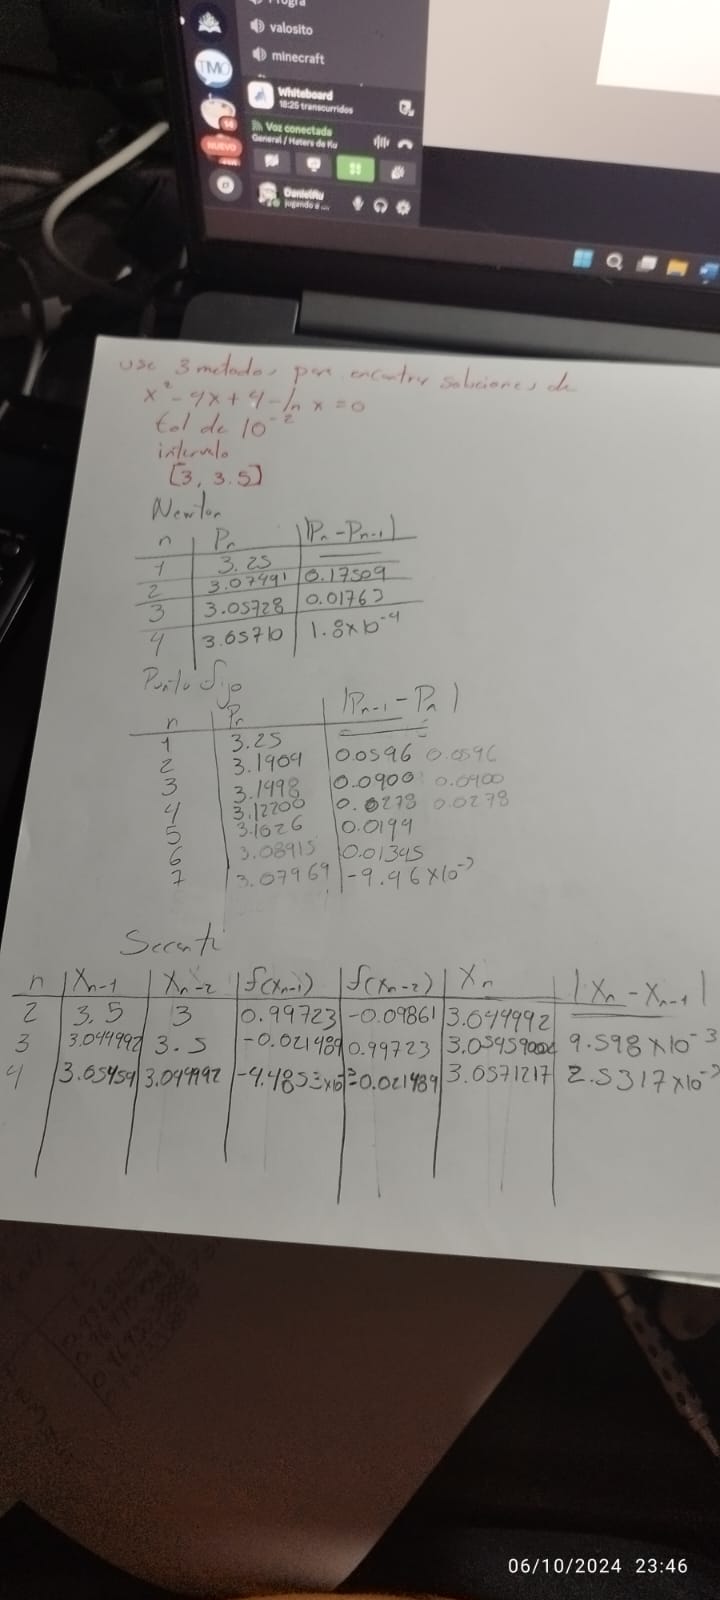 Progra
valosito
minecraft
TMO
Whiteboard
18:25 transcurridos
14
Voz conectada
NUEVO
General / Haters de Ku
Danielitu
jugando a ...
use 3 metodos para encontrar soluciones de
x² - 4x + 4 - ln x = 0
tol de 10⁻²
intervalo
[3, 3.5]
Newton
n Pn |Pn - Pn-1|
1 3.25
2 3.07491 0.17509
3 3.05728 0.01763
4 3.05710 1.8x10⁻⁴
Punto fijo
n Pn |Pn-1 - Pn|
1 3.25
2 3.1904 0.0596 0.0596
3 3.1498 0.0900 0.0400
4 3.12200 0.0278 0.0278
5 3.1026 0.0194
6 3.08915 0.01345
7 3.07969 -9.46x10⁻³
Secante
n Xn-1 Xn-2 f(Xn-1) f(Xn-2) Xn |Xn - Xn-1|
2 3.5 3 0.99723 -0.09861 3.044992
3 3.044992 3.5 -0.021489 0.99723 9.598x10⁻³
4 3.05459 3.044992 -0.021489 3.0571217 2.5317x10⁻³
06/10/2024 23:46